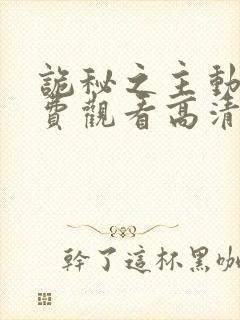 詭秘之主動
費觀看高清
幹了這杯黑咖